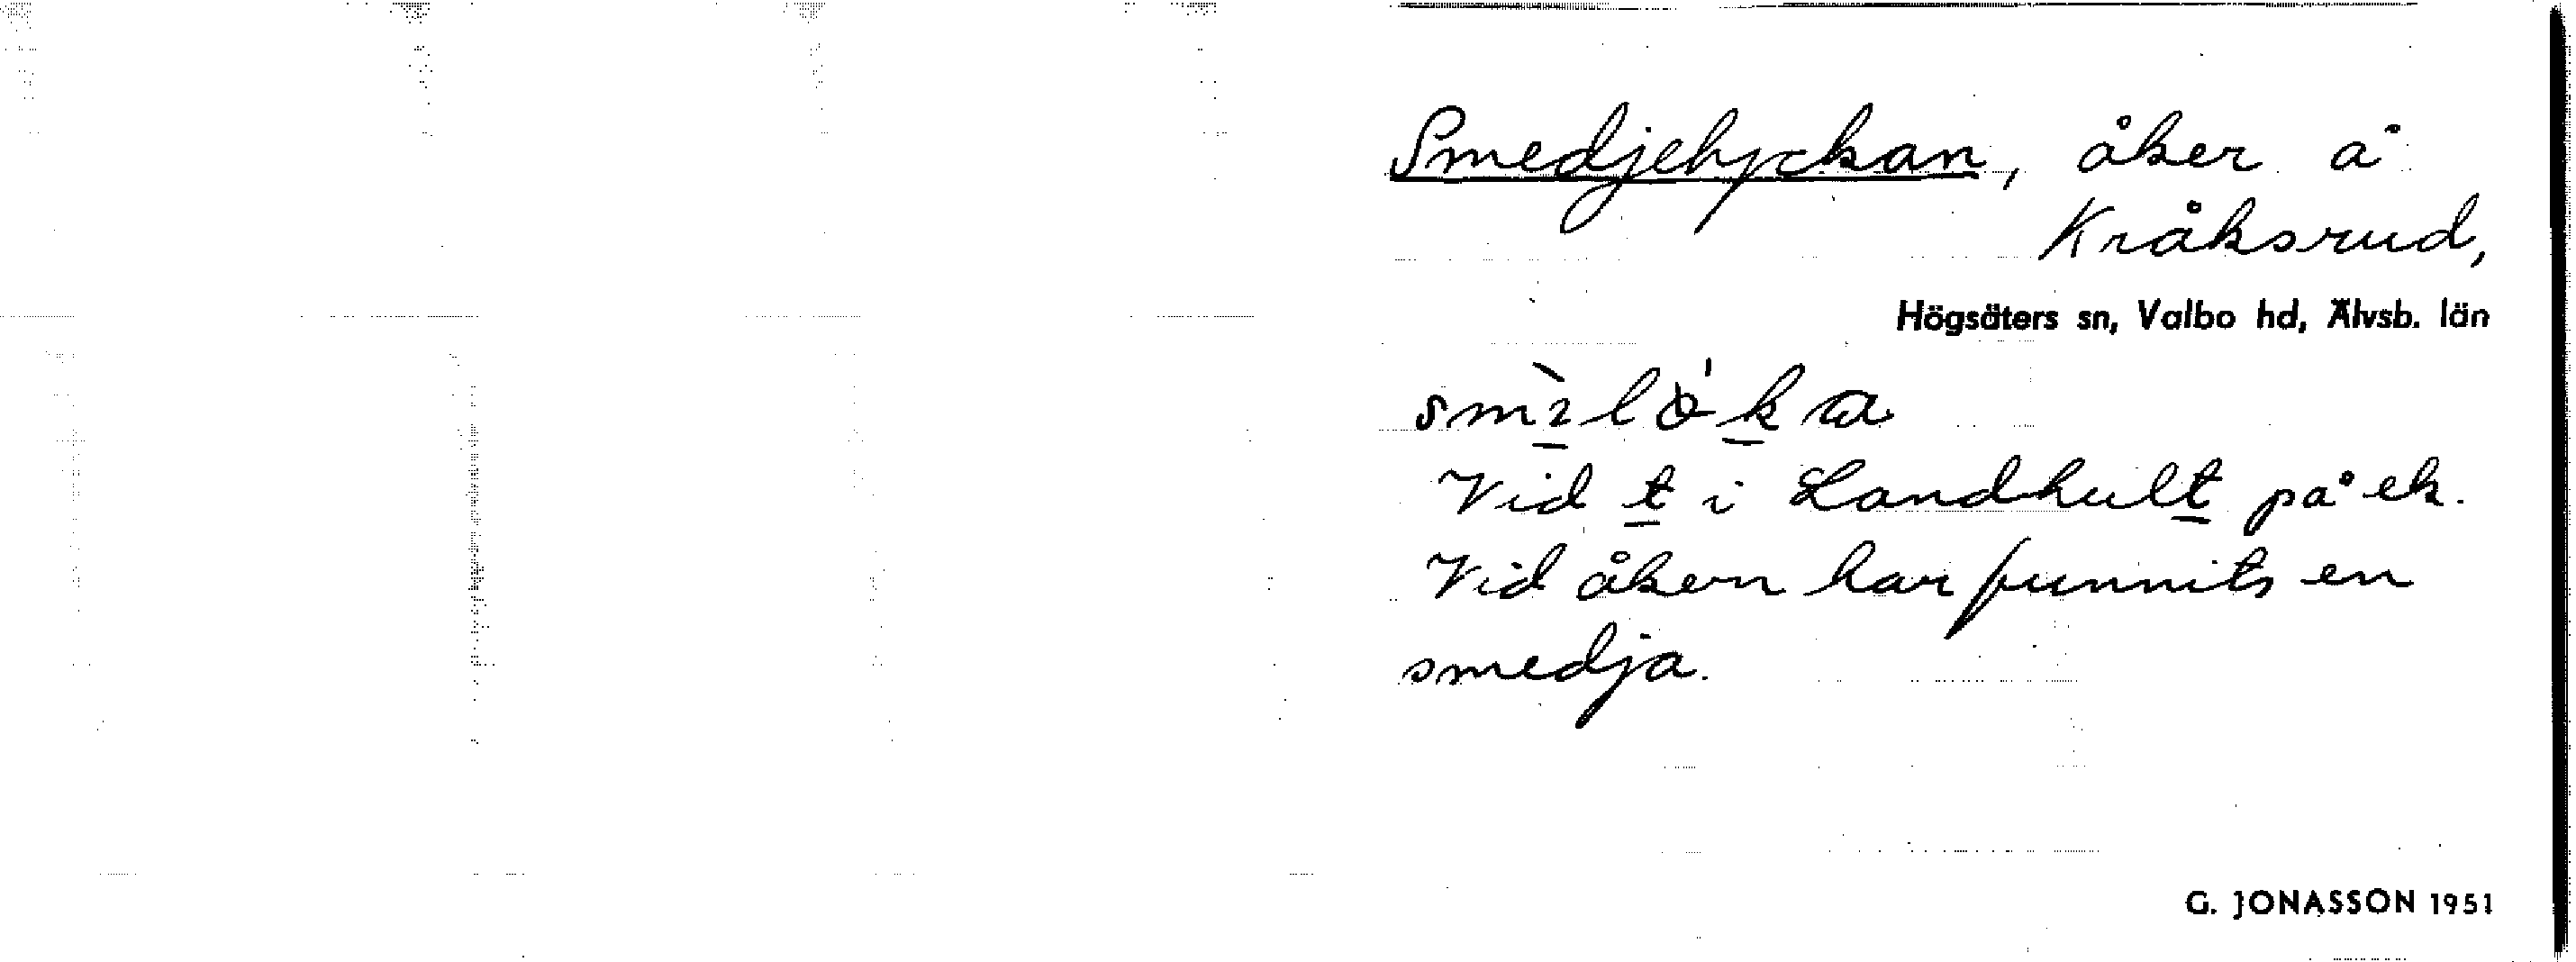 Smedjelyckan, åker å
Kråksrud,
Högsäters sn, Valbo hd, Älvsb. län
Vid t i Landhult på ek.
Vid åkern har funnits en
smedja.
G. JONASSON 1951